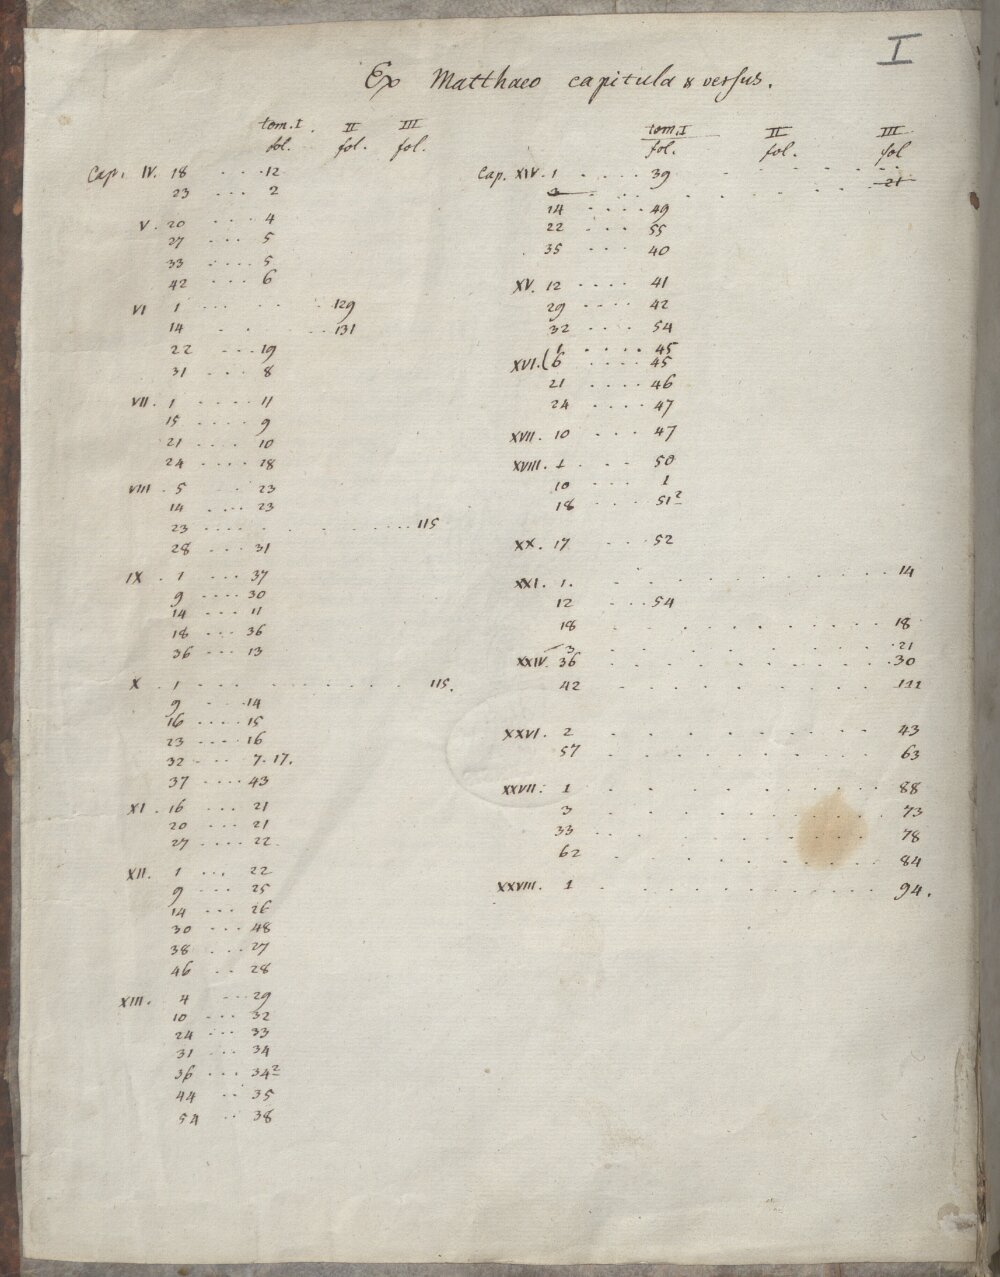 I
Ex Matthaeo capitula & versus.
tom. I. II III
fol. fol. fol.
Cap. IV. 18 .... 12
23 ... 2
V. 20 .... 4
27 ... 5
33 .... 5
42 ... 6
VI 1 ..... 129
14 .... 131
22 ... 19
31 ... 8
VII. 1 .... 11
15 .... 9
21 .... 10
24 .... 18
VIII. 5 ... 23
14 ... 23
23 .............. 115
28 ... 31
IX. 1 ... 37
9 .... 30
14 ... 11
18 ... 36
36 ... 13
X. 1 ........... 115.
9 .... 14
16 .... 15
23 .... 16
32 ... 7. 17.
37 .... 43
XI. 16 ... 21
20 ... 21
27 ... 22
XII. 1 ... 22
9 ... 25
14 ... 26
30 ... 48
38 ... 27
46 .. 28
XIII. 4 ... 29
10 ... 32
24 ... 33
31 ... 34
36 ... 34²
44 .. 35
54 .. 38
tom. I II III
fol. fol. fol
Cap. XIV. 1 .... 39
3 .......... 21
14 .... 49
22 ... 55
35 ... 40
XV. 12 .... 41
29 .... 42
32 .... 54
1 .... 45
XVI. ( 6 .... 45
21 .... 46
24 .... 47
XVII. 10 ... 47
XVIII. 1 ... 50
10 ... 1
18 ... 51²
XX. 17 ... 52
XXI. 1. .......... 14
12 ... 54
18 .......... 18
3 .......... 21
XXIV. 36 .......... 30
42 ........ 111
XXVI. 2 .......... 43
57 .......... 63
XXVII. 1 .......... 88
3 .......... 73
33 .......... 78
62 .......... 84
XXVIII. 1 .......... 94.